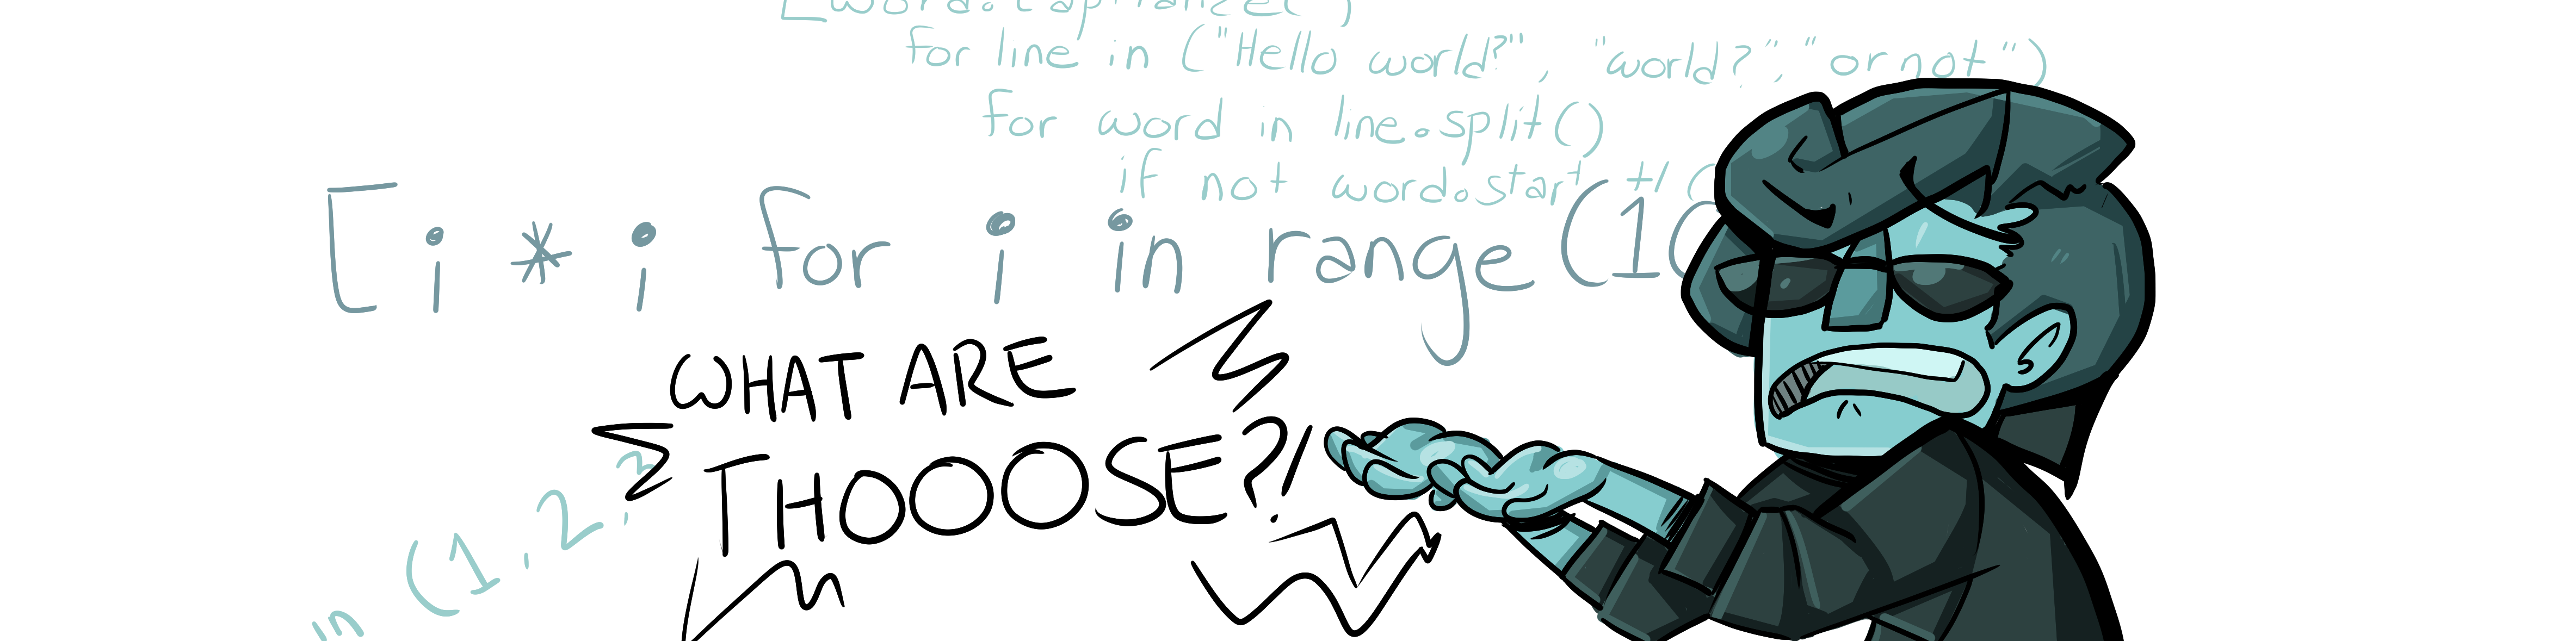 [word.capitalize()
for line in ("Hello world?", "world?", "or not")
for word in line.split()
if not word.start
[i * i for i in range (10
WHAT ARE
THOOOSE?!
in (1, 2, 3